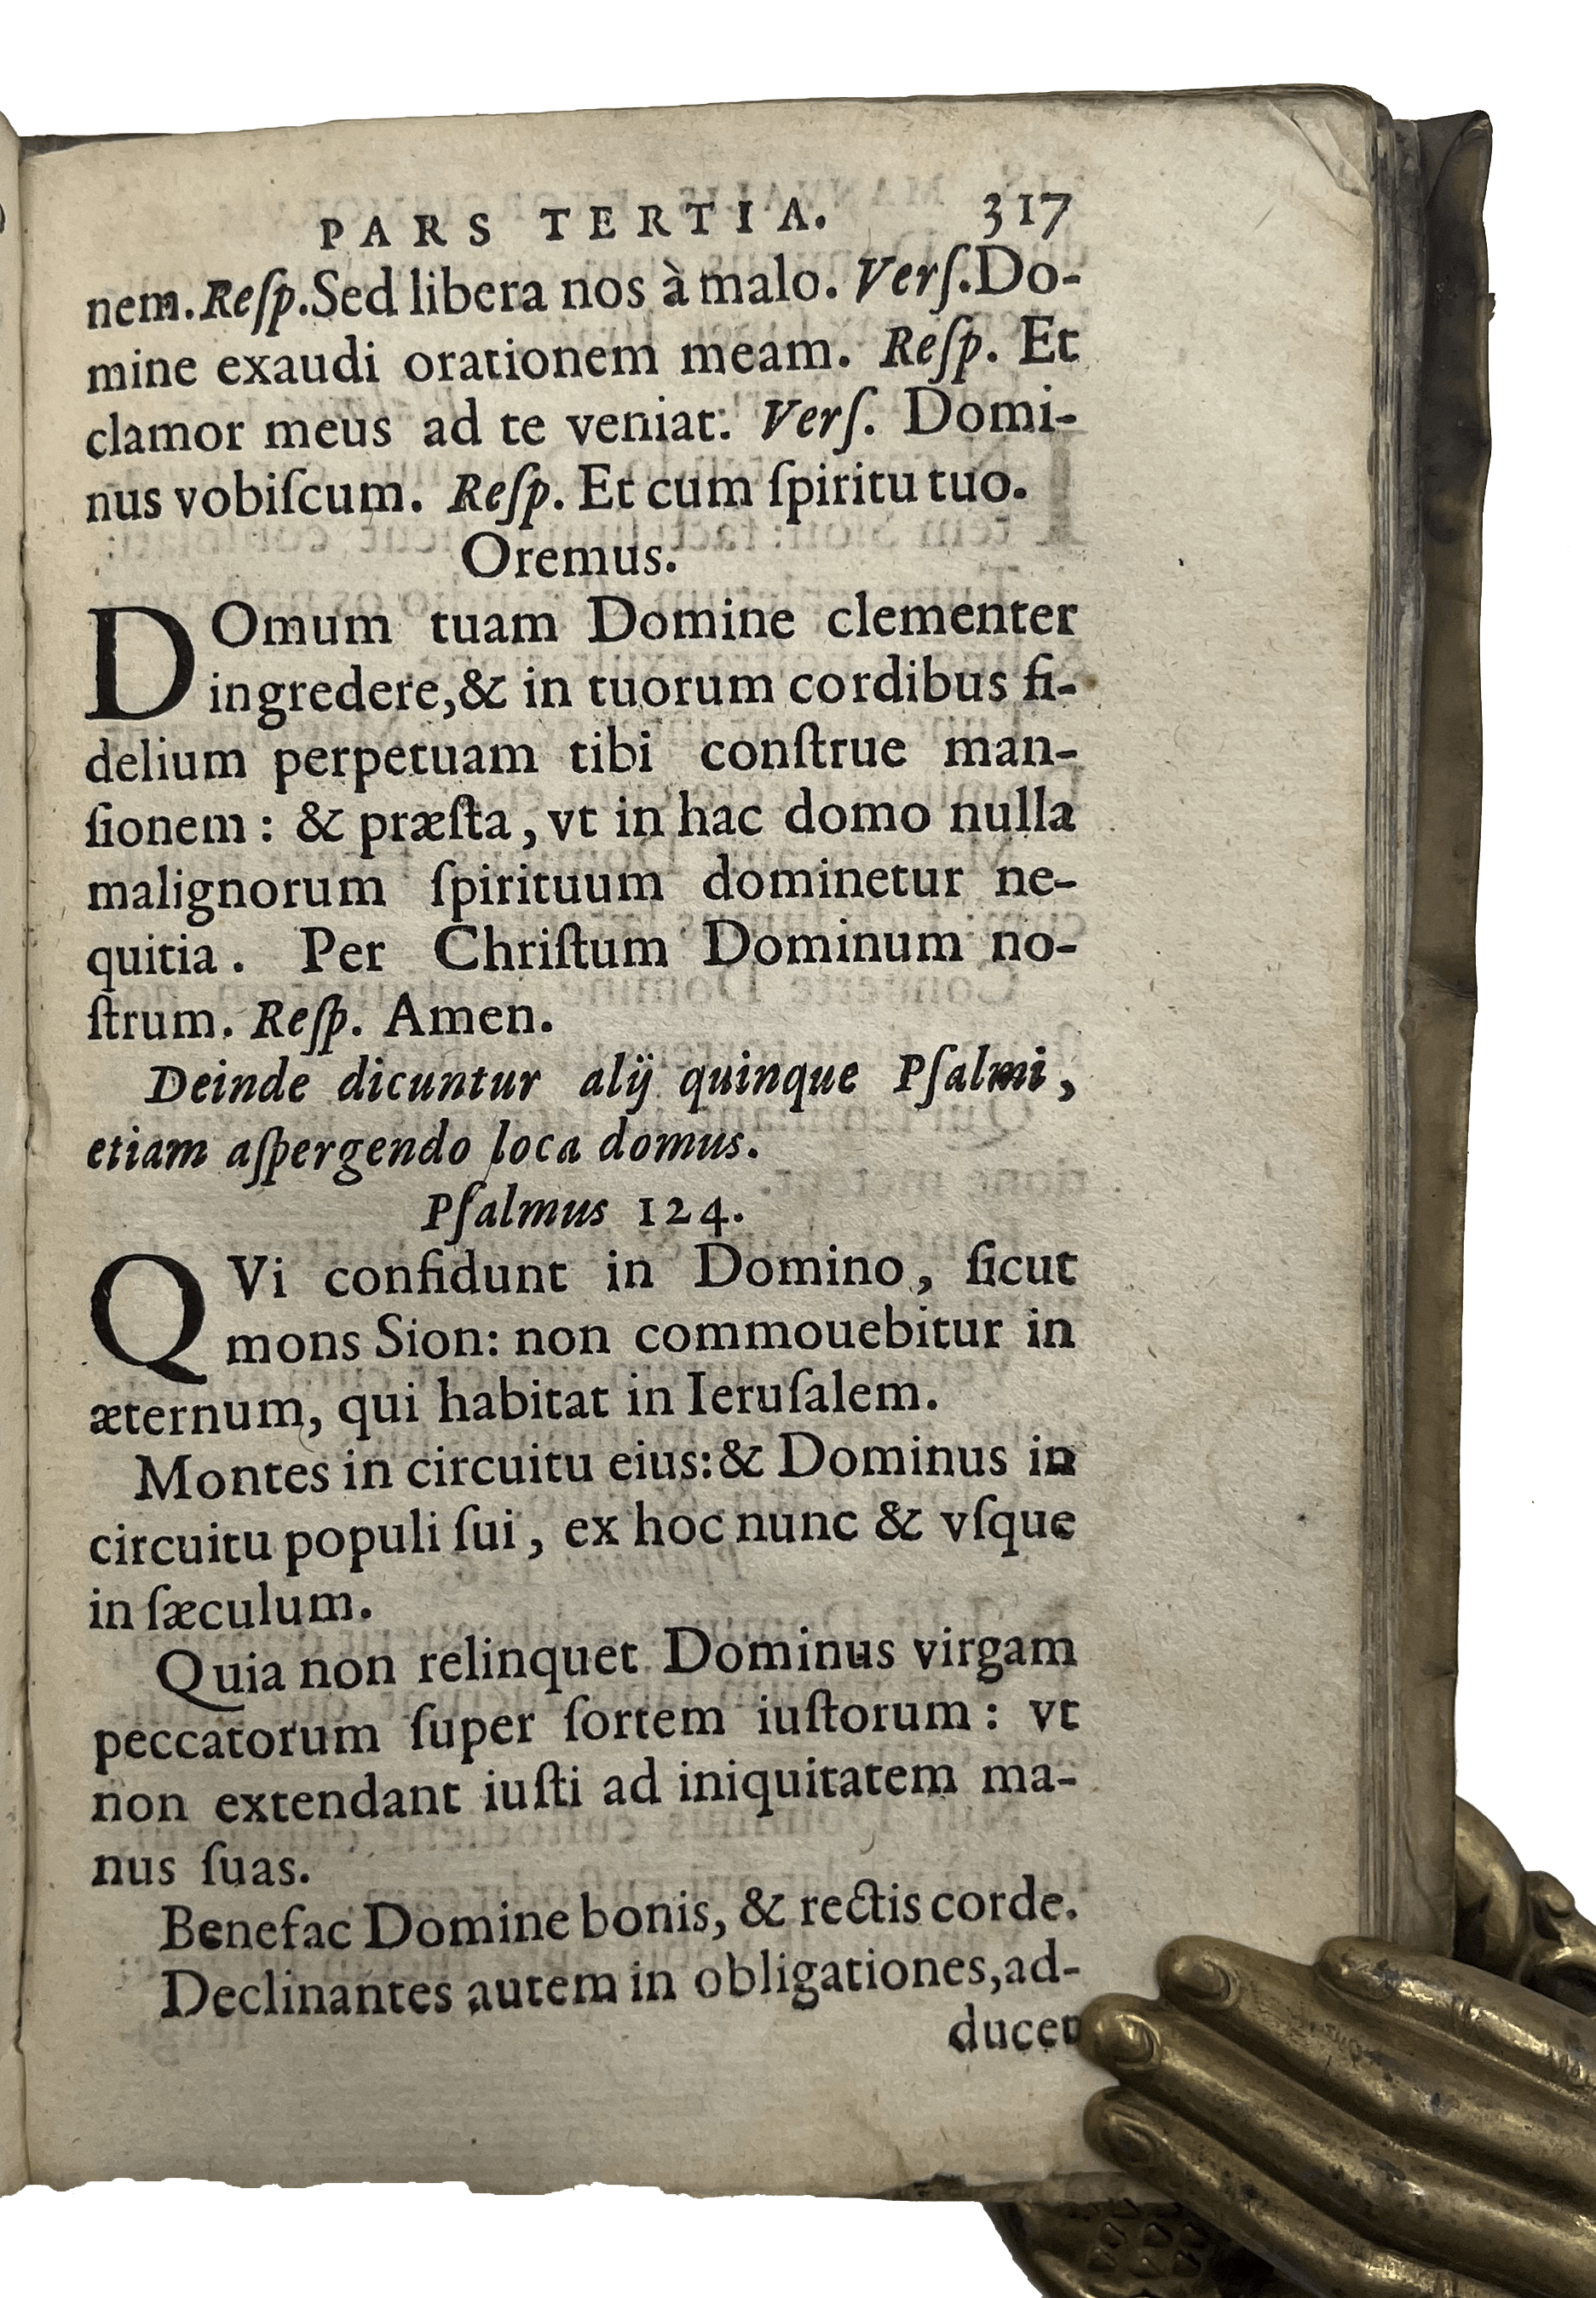 PARS TERTIA. 317
nem. Reſp. Sed libera nos à malo. Verſ. Do-
mine exaudi orationem meam. Reſp. Et
clamor meus ad te veniat. Verſ. Domi-
nus vobiſcum. Reſp. Et cum ſpiritu tuo.
Oremus.
DOmum tuam Domine clementer
ingredere, & in tuorum cordibus fi-
delium perpetuam tibi conſtrue man-
ſionem: & præſta, vt in hac domo nulla
malignorum ſpirituum dominetur ne-
quitia. Per Chriſtum Dominum no-
ſtrum. Reſp. Amen.
Deinde dicuntur alij quinque Pſalmi,
etiam aſpergendo loca domus.
Pſalmus 124.
QVi confidunt in Domino, ſicut
mons Sion: non commouebitur in
æternum, qui habitat in Ieruſalem.
Montes in circuitu eius: & Dominus in
circuitu populi ſui, ex hoc nunc & vſque
in ſæculum.
Quia non relinquet Dominus virgam
peccatorum ſuper ſortem iuſtorum: vt
non extendant iuſti ad iniquitatem ma-
nus ſuas.
Benefac Domine bonis, & rectis corde.
Declinantes autem in obligationes, ad-
ducet